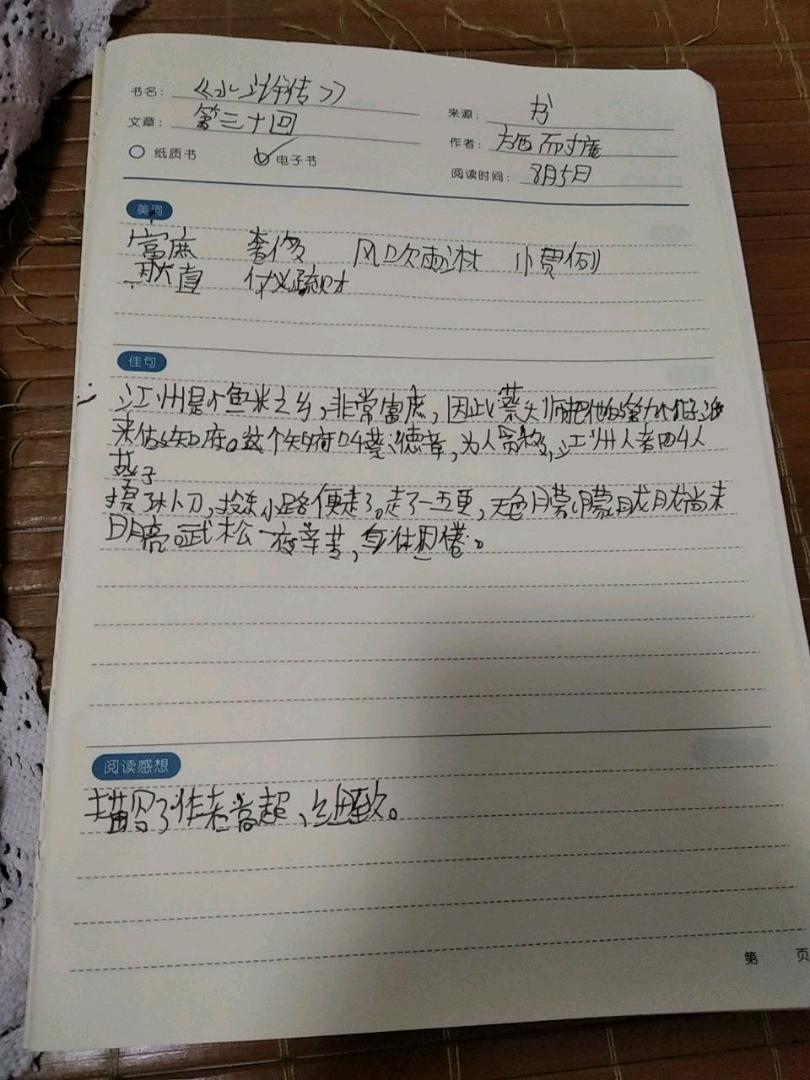 书名：《水浒传》
来源：书
文章：第三十回
作者：施耐庵
纸质书 电子书
阅读时间：8月5日
美词
富庶 奢侈 风吹雨淋 小费例
耿直 仗义疏财
佳句
江州是个鱼米之乡，非常富庶，因此蔡太师把他的第九个儿子派
来做知府。这个知府叫蔡德章，为人贪 ，江州人都叫人
蔡
提了朴刀，投东小路便走了。走了一五更，天色朦朦胧胧尚未
明亮。武松一夜辛苦，身体困倦。
阅读感想
描写了作者高超、细致。
第 页